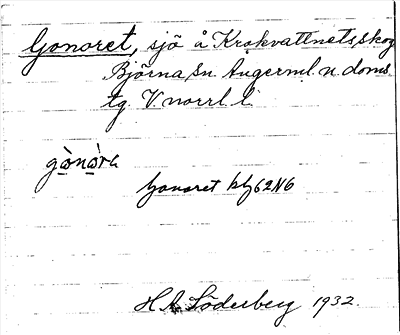 Gonoret, sjö å Krokvattnets skog
Björna sn. Ångerml. n. doms.
tg. V. norrl. l.
gònòra
Gonoret kbl 62N6
H. A. Söderberg 1932.